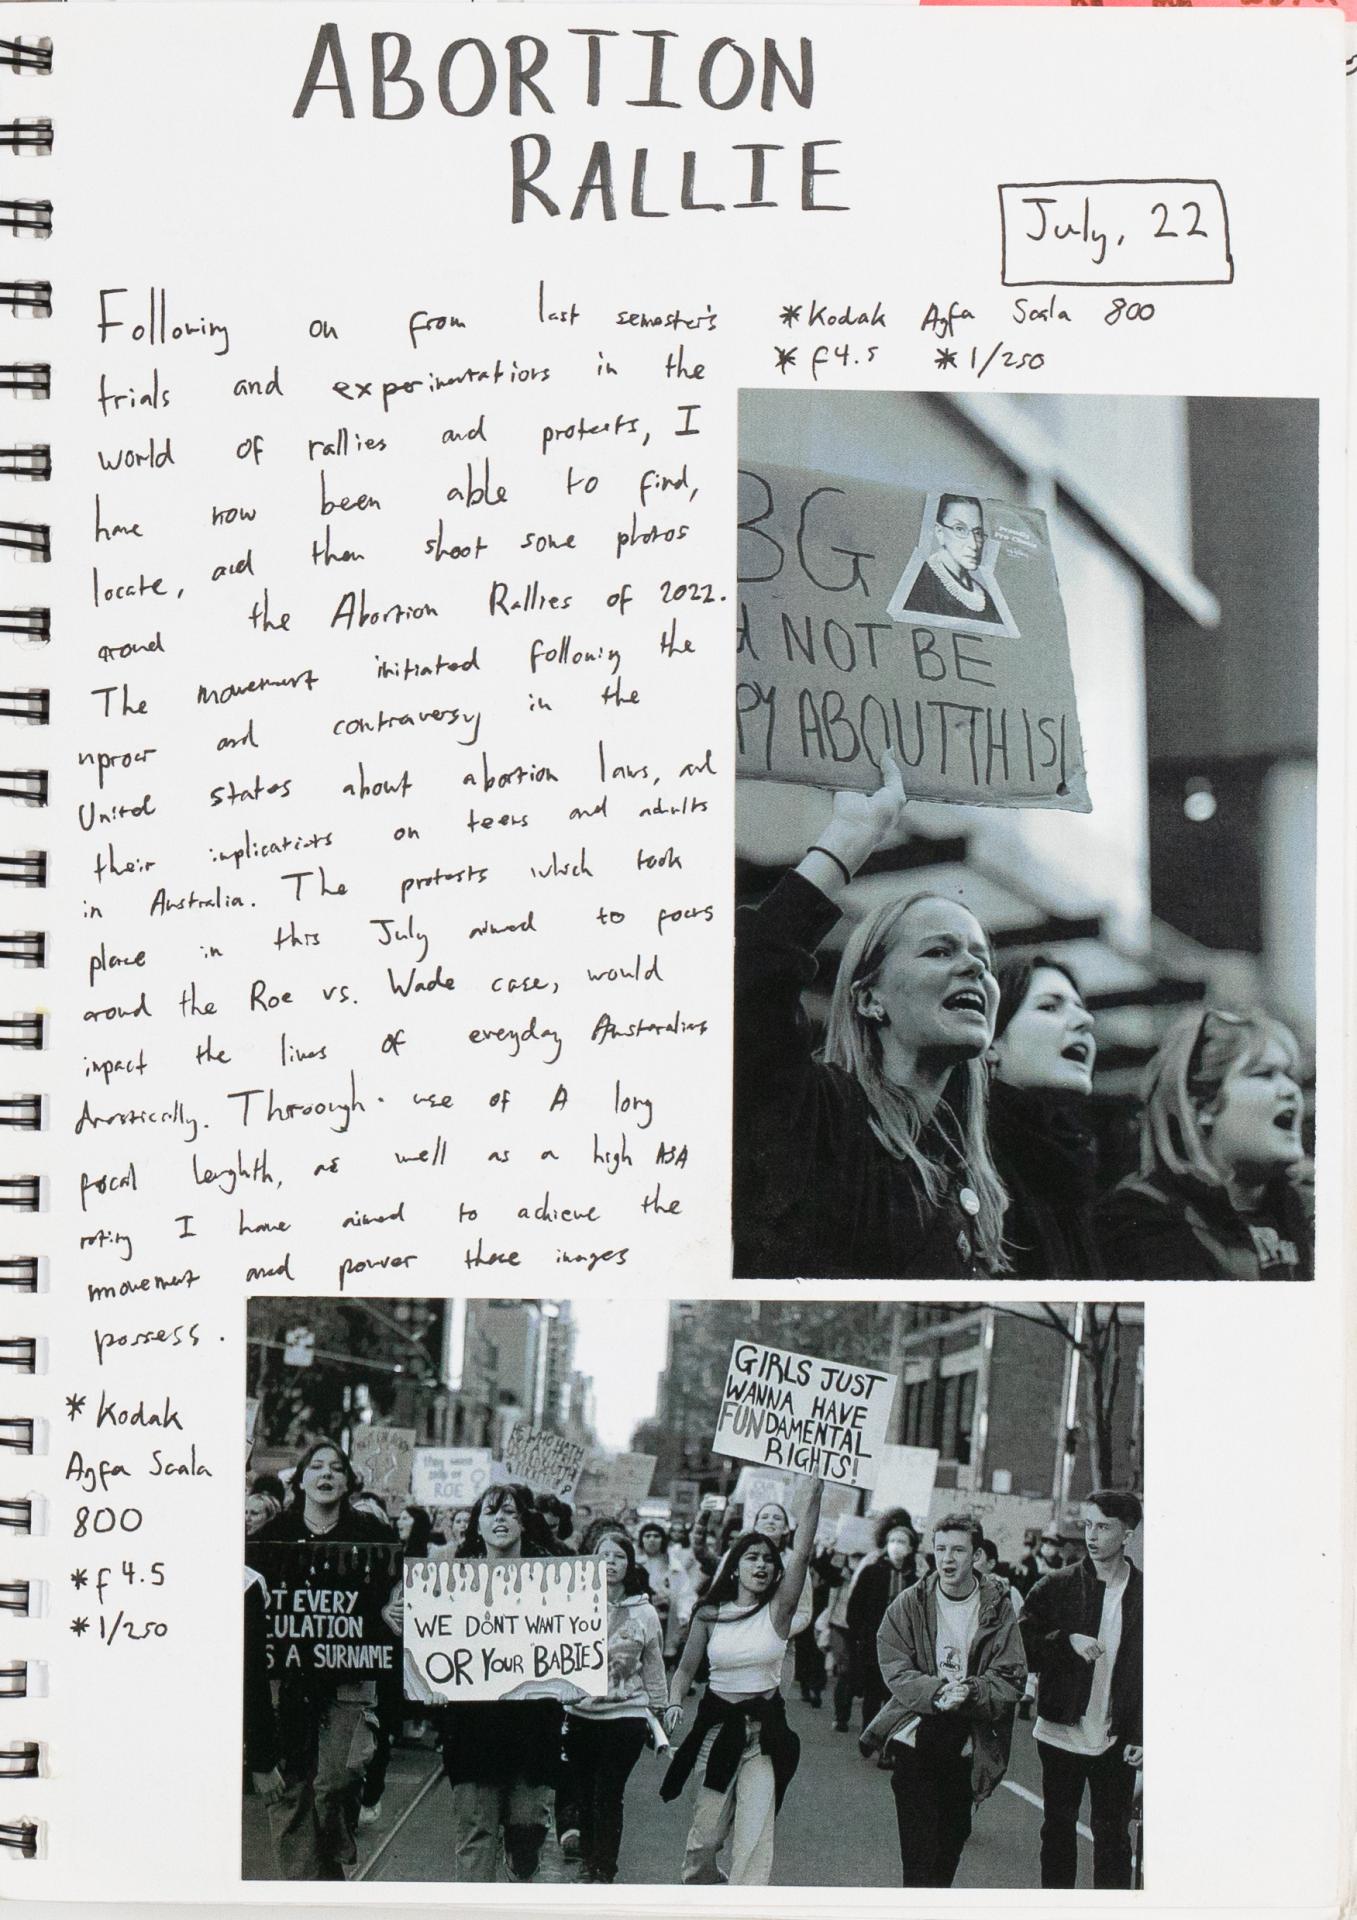 ABORTION
RALLIE
July, 22
Following on from last semester's
trials and experimentations in the
world of rallies and protests, I
have now been able to find,
locate, and then shoot some photos
around the Abortion Rallies of 2022.
The movement initiated following the
uproar and contraversy in the
United states about abortion laws, and
their implications on teens and adults
in Australia. The protests which took
place in this July aimed to focus
around the Roe vs. Wade case, would
impact the lives of everyday Australians
drastically. Throough use of A long
focal lenghth, as well as a high ASA
rating I have aimed to achieve the
movement and power these images
possess.
*Kodak Agfa Scala 800
*f4.5 *1/250
BG
NOT BE
PY ABOUT THIS!
* Kodak
Agfa Scala
800
*f 4.5
*1/250
GIRLS JUST
WANNA HAVE
FUNDAMENTAL
RIGHTS!
they were
ROE
HATH
T EVERY
CULATION
S A SURNAME
WE DON'T WANT YOU
OR YOUR BABIES